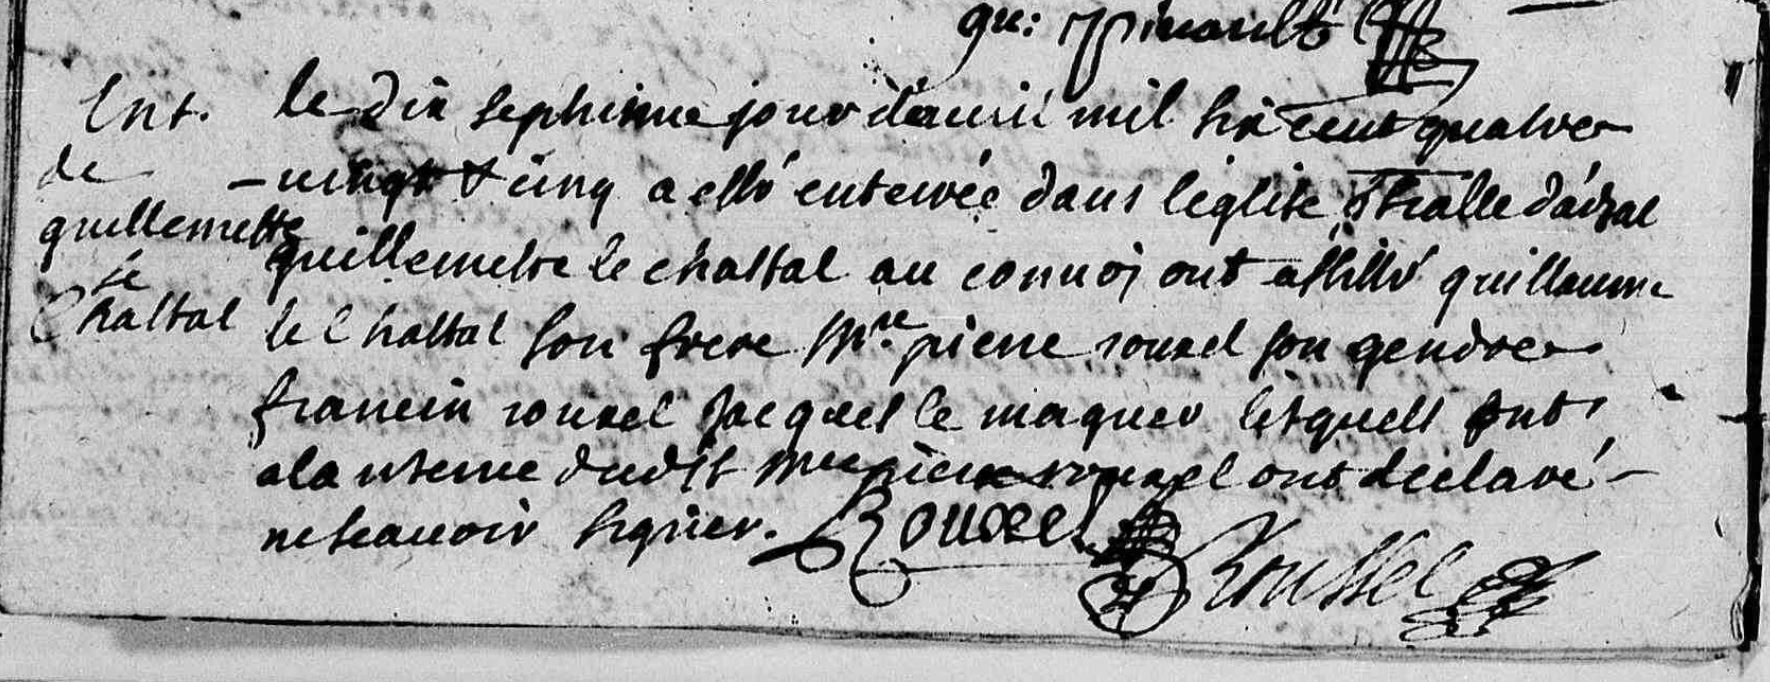 Ent.
de
guillemette
le
Chattal
le dix septiesme jour d'auril mil six cent quatre
-vingt & cinq a esté enterrée dans léglise
guillemette le chattal au convoi ont assisté guillaume
le Chattal son frere Mre. pierre rouxel son gendre
francois rouxel Jacques le maguer lesquels
ala reserve dudit Mre pierre rouxel ont déclaré -
ne scauoir signer. Rouxel
Roussel